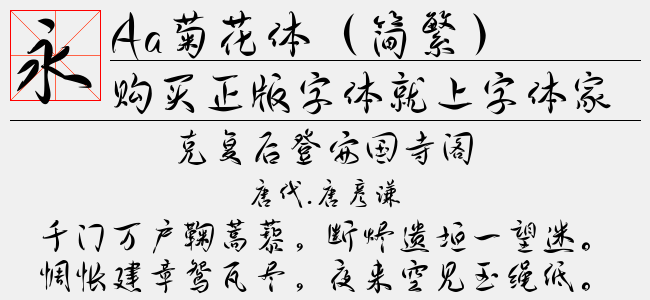 永
Aa菊花体（简繁）
购买正版字体就上字体家
克复后登安国寺阁
唐代.唐彦谦
千门万户鞠蒿藜，断烬遗垣一望迷。
惆怅建章鸳瓦尽，夜来空见玉绳低。